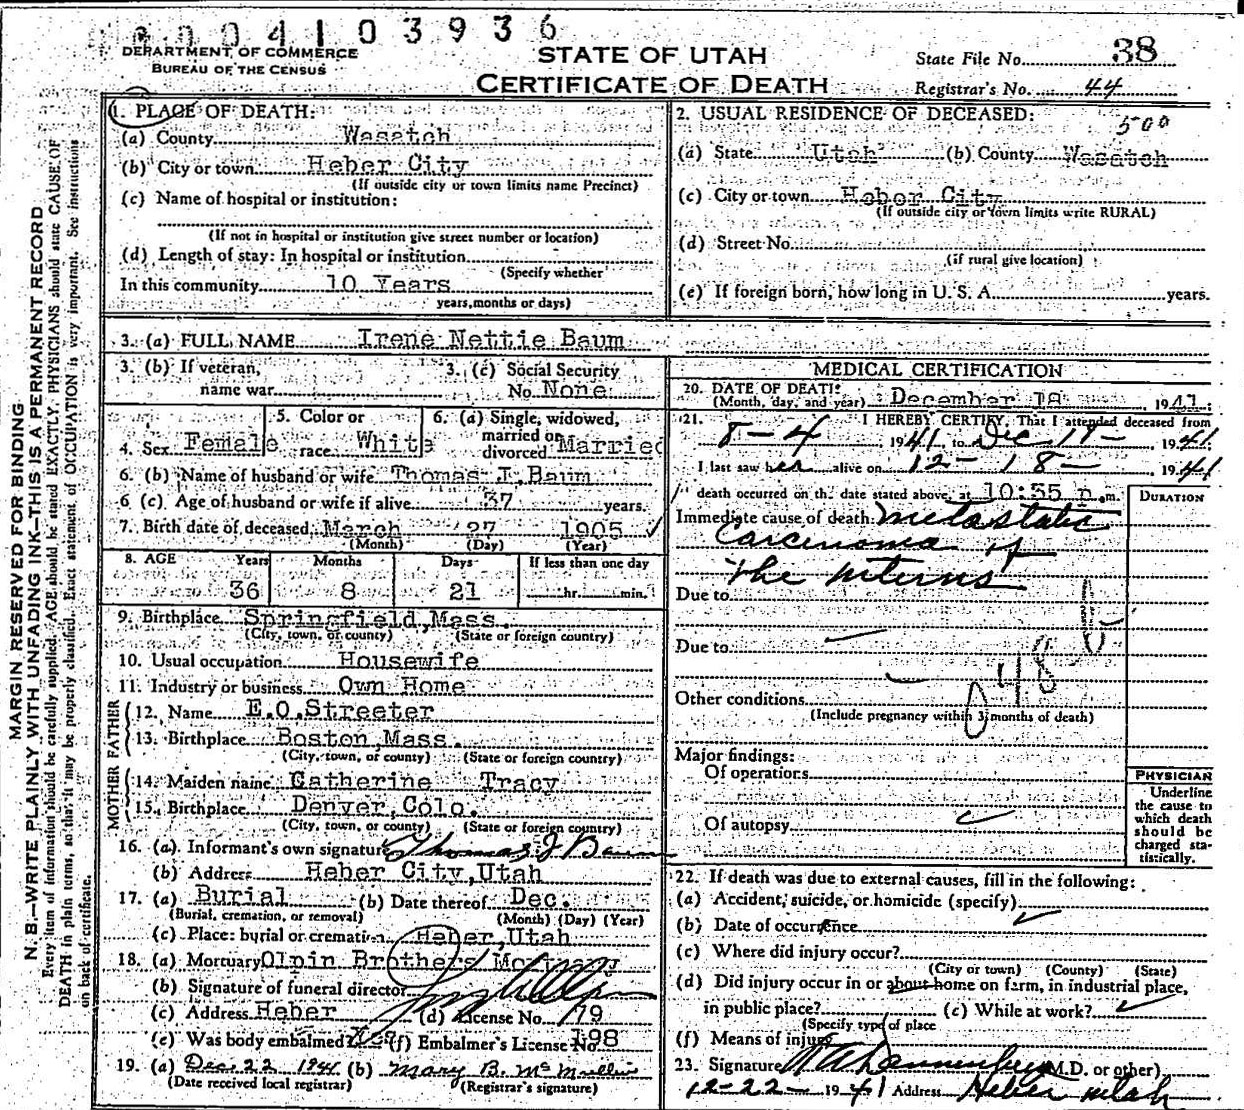 0004103936
DEPARTMENT OF COMMERCE
BUREAU OF THE CENSUS
STATE OF UTAH
CERTIFICATE OF DEATH
State File No. 38
Registrar's No. 44
MARGIN RESERVED FOR BINDING
N. B.—WRITE PLAINLY WITH UNFADING INK—THIS IS A PERMANENT RECORD
Every item of information should be carefully supplied. AGE should be stated EXACTLY. PHYSICIANS should state CAUSE OF
DEATH in plain terms, so that it may be properly classified. Exact statement of OCCUPATION is very important. See instructions
on back of certificate.
1. PLACE OF DEATH:
(a) County Wasatch
(b) City or town Heber City
(If outside city or town limits name Precinct)
(c) Name of hospital or institution:
(If not in hospital or institution give street number or location)
(d) Length of stay: In hospital or institution
(Specify whether
In this community 10 Years
years, months or days)
2. USUAL RESIDENCE OF DECEASED:
500
(a) State Utah (b) County Wasatch
(c) City or town Heber City
(If outside city or town limits write RURAL)
(d) Street No.
(if rural give location)
(e) If foreign born, how long in U. S. A. years.
3. (a) FULL NAME Irene Nettie Baum
3. (b) If veteran,
name war
3. (c) Social Security
No. None
4. Sex Female
5. Color or
race White
6. (a) Single, widowed,
married or
divorced Married
6. (b) Name of husband or wife Thomas J. Baum
6 (c) Age of husband or wife if alive 37 years.
7. Birth date of deceased March 27 1905
(Month) (Day) (Year)
8. AGE Years Months Days If less than one day
36 8 21 hr. min.
9. Birthplace Springfield, Mass.
(City, town, or county) (State or foreign country)
10. Usual occupation Housewife
11. Industry or business Own Home
FATHER
12. Name E.O. Streeter
13. Birthplace Boston, Mass.
(City, town, or county) (State or foreign country)
MOTHER
14. Maiden name Catherine Tracy
15. Birthplace Denver, Colo.
(City, town, or county) (State or foreign country)
16. (a) Informant's own signature Thomas J Baum
(b) Address Heber City, Utah
17. (a) Burial (b) Date thereof Dec.
(Burial, cremation, or removal) (Month) (Day) (Year)
(c) Place: burial or cremation Heber, Utah
18. (a) Mortuary Olpin Brothers Mortuary
(b) Signature of funeral director
(c) Address Heber (d) License No. 79
(e) Was body embalmed Yes (f) Embalmer's License No. 198
19. (a) Dec. 22 1941 (b) Mary B. McMullin
(Date received local registrar) (Registrar's signature)
MEDICAL CERTIFICATION
20. DATE OF DEATH:
(Month, day, and year) December 18 1941
21. I HEREBY CERTIFY, That I attended deceased from
8-4 1941 to Dec 18- 1941
I last saw her alive on 12-18- 1941
death occurred on the date stated above, at 10:35 p.m.
DURATION
Immediate cause of death metastatic
Carcinoma of
the uterus
Due to
Due to
048
Other conditions
(Include pregnancy within 3 months of death)
Major findings:
Of operations
Of autopsy
PHYSICIAN
Underline
the cause to
which death
should be
charged sta-
tistically.
22. If death was due to external causes, fill in the following:
(a) Accident, suicide, or homicide (specify)
(b) Date of occurrence
(c) Where did injury occur?
(City or town) (County) (State)
(d) Did injury occur in or about home on farm, in industrial place,
in public place? (e) While at work?
(Specify type of place
(f) Means of injury
23. Signature (M.D. or other)
12-22- 1941 Address Heber Utah